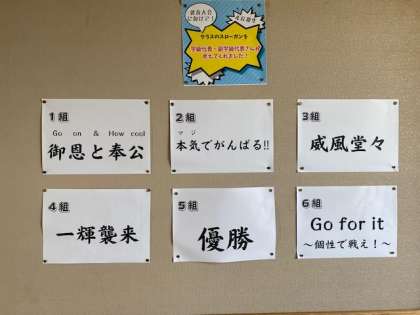 に向けて！
クラスのスローガンを
学級代表・副学級代表さんが
考えてくれました！
1組
Go on & How cool
御恩と奉公
2組
マジ
本気でがんばる!!
3組
威風堂々
4組
一輝襲来
5組
優勝
6組
Go for it
～個性で戦え！～